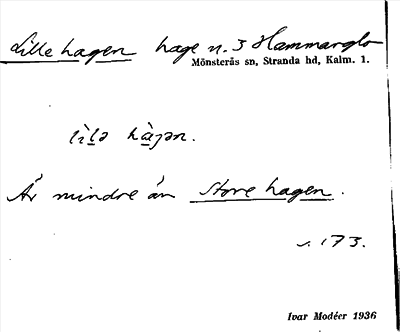 Lille hagen hage n. 3 Hammarglo
Mönsterås sn, Stranda hd, Kalm. 1.
lìlə hàɡən.
Är mindre än Store hagen.
s. 173.
Ivar Modéer 1936